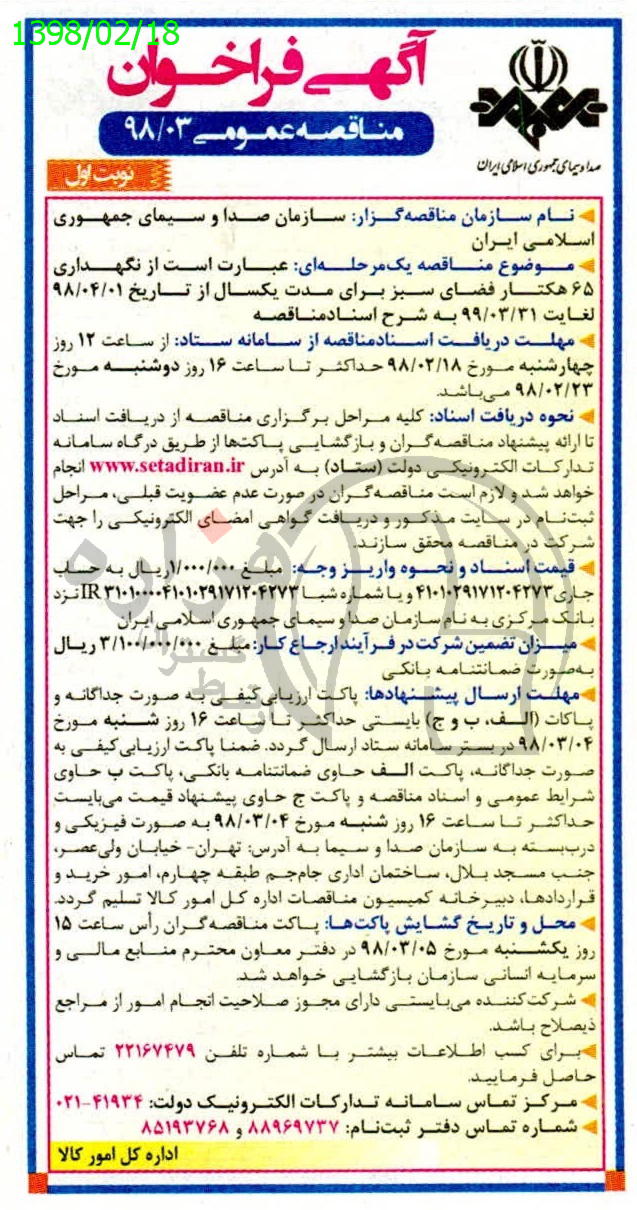 1398/02/18
آگهی فراخوان
مناقصه عمومی ۹۸/۰۳
صدا و سیمای جمهوری اسلامی ایران
نوبت اول
نام سازمان مناقصه‌گزار: سازمان صدا و سیمای جمهوری
اسلامی ایران
موضوع مناقصه یک‌مرحله‌ای: عبارت است از نگهداری
۶۵ هکتار فضای سبز برای مدت یکسال از تاریخ ۹۸/۰۴/۰۱
لغایت ۹۹/۰۳/۳۱ به شرح اسناد مناقصه
مهلت دریافت اسناد مناقصه از سامانه ستاد: از ساعت ۱۲ روز
چهارشنبه مورخ ۹۸/۰۲/۱۸ حداکثر تا ساعت ۱۶ روز دوشنبه مورخ
۹۸/۰۲/۲۳ می‌باشد.
نحوه دریافت اسناد: کلیه مراحل برگزاری مناقصه از دریافت اسناد
تا ارائه پیشنهاد مناقصه‌گران و بازگشایی پاکت‌ها از طریق درگاه سامانه
تدارکات الکترونیکی دولت (ستاد) به آدرس www.setadiran.ir انجام
خواهد شد و لازم است مناقصه‌گران در صورت عدم عضویت قبلی، مراحل
ثبت‌نام در سایت مذکور و دریافت گواهی امضای الکترونیکی را جهت
شرکت در مناقصه محقق سازند.
قیمت اسناد و نحوه واریز وجه: مبلغ ۱/۰۰۰/۰۰۰ریال به حساب
جاری ۴۱۰۱۰۲۹۱۷۱۲۰۴۲۷۳ و یا شماره شبا IR ۳۱۰۱۰۰۰۰۴۱۰۱۰۲۹۱۷۱۲۰۴۲۷۳ نزد
بانک مرکزی به نام سازمان صدا و سیمای جمهوری اسلامی ایران
میزان تضمین شرکت در فرآیند ارجاع کار: مبلغ ۳/۱۰۰/۰۰۰/۰۰۰ ریال
به‌صورت ضمانتنامه بانکی
مهلت ارسال پیشنهادها: پاکت ارزیابی کیفی به صورت جداگانه و
پاکات (الف، ب و ج) بایستی حداکثر تا ساعت ۱۶ روز شنبه مورخ
۹۸/۰۳/۰۴ در بستر سامانه ستاد ارسال گردد. ضمنا پاکت ارزیابی کیفی به
صورت جداگانه، پاکت الف حاوی ضمانتنامه بانکی، پاکت ب حاوی
شرایط عمومی و اسناد مناقصه و پاکت ج حاوی پیشنهاد قیمت می‌بایست
حداکثر تا ساعت ۱۶ روز شنبه مورخ ۹۸/۰۳/۰۴ به صورت فیزیکی و
درب‌بسته به سازمان صدا و سیما به آدرس: تهران- خیابان ولی‌عصر،
جنب مسجد بلال، ساختمان اداری جام‌جم طبقه چهارم، امور خرید و
قراردادها، دبیرخانه کمیسیون مناقصات اداره کل امور کالا تسلیم گردد.
محل و تاریخ گشایش پاکت‌ها: پاکت مناقصه‌گران رأس ساعت ۱۵
روز یکشنبه مورخ ۹۸/۰۳/۰۵ در دفتر معاون محترم منابع مالی و
سرمایه انسانی سازمان بازگشایی خواهد شد.
شرکت‌کننده می‌بایستی دارای مجوز صلاحیت انجام امور از مراجع
ذیصلاح باشد.
برای کسب اطلاعات بیشتر با شماره تلفن ۲۲۱۶۷۴۷۹ تماس
حاصل فرمایید.
مرکز تماس سامانه تدارکات الکترونیک دولت: ۴۱۹۳۴-۰۲۱
شماره تماس دفتر ثبت‌نام: ۸۸۹۶۹۷۳۷ و ۸۵۱۹۳۷۶۸
اداره کل امور کالا